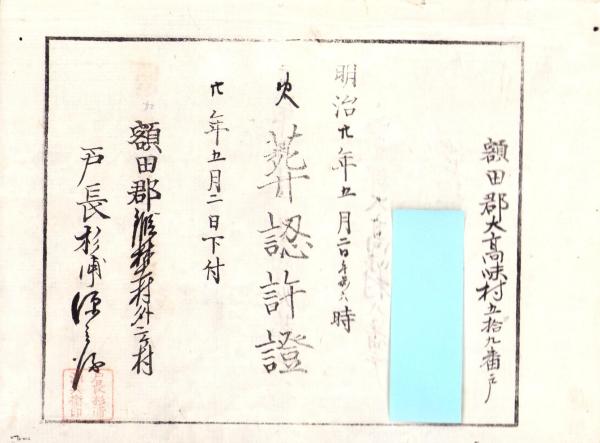 額田郡大高味村五拾九番戸
明治廿年五月二日午後六時
火葬認許證
廿年五月二日下付
額田郡 村外二ヶ村
戸長杉浦